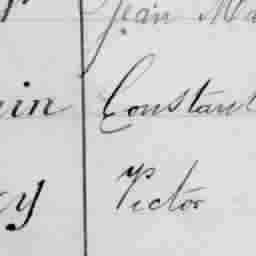 Jean Ma
in Constant
y Victor